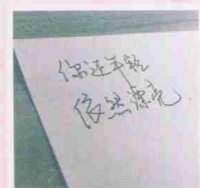 你还年轻
依然漂亮